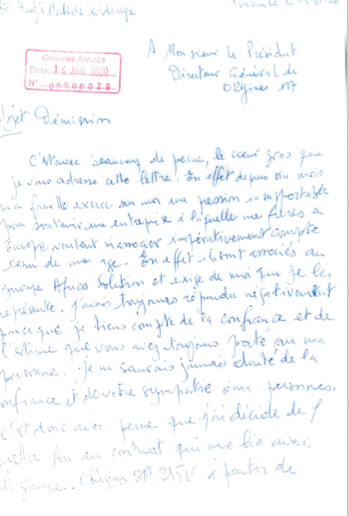 Courrier Arrivée
Date 14 JAN. 2020
N° 00000029
A Monsieur le Président
Directeur Général de
Objet Démission
C'est avec beaucoup de peine, le cœur gros que
je vous adresse cette lettre. En effet depuis un mois
ma famille exerce sur moi une pression insupportable
pour soutenir une entreprise à laquelle mes frères en
Europe veulent m'associer impérativement compte
tenu de mon age. En effet ils sont associés au
groupe Africa Solution et exige de moi que je les
représente. J'avais toujours répondu négativement
parce que je tiens compte de la confiance et de
l'estime que vous avez toujours porté sur ma
personne. Je ne saurais jamais douté de la
confiance et de votre sympathie à ma personne.
C'est donc avec peine que j'ai décidé de
mettre fin au contrat qui me lie avec
le groupe. à partir de